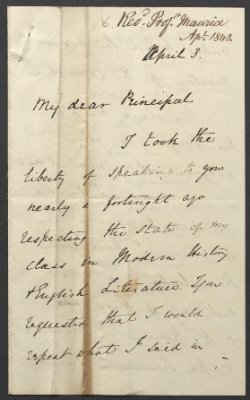 6 Revd. Profr. Maurice
Apl. 1843.
April 3.
My dear Principal
I took the
liberty of speaking to you
nearly a fortnight ago
respecting the state of my
class in Modern History
& English Literature. You
requested that I would
repeat what I said in